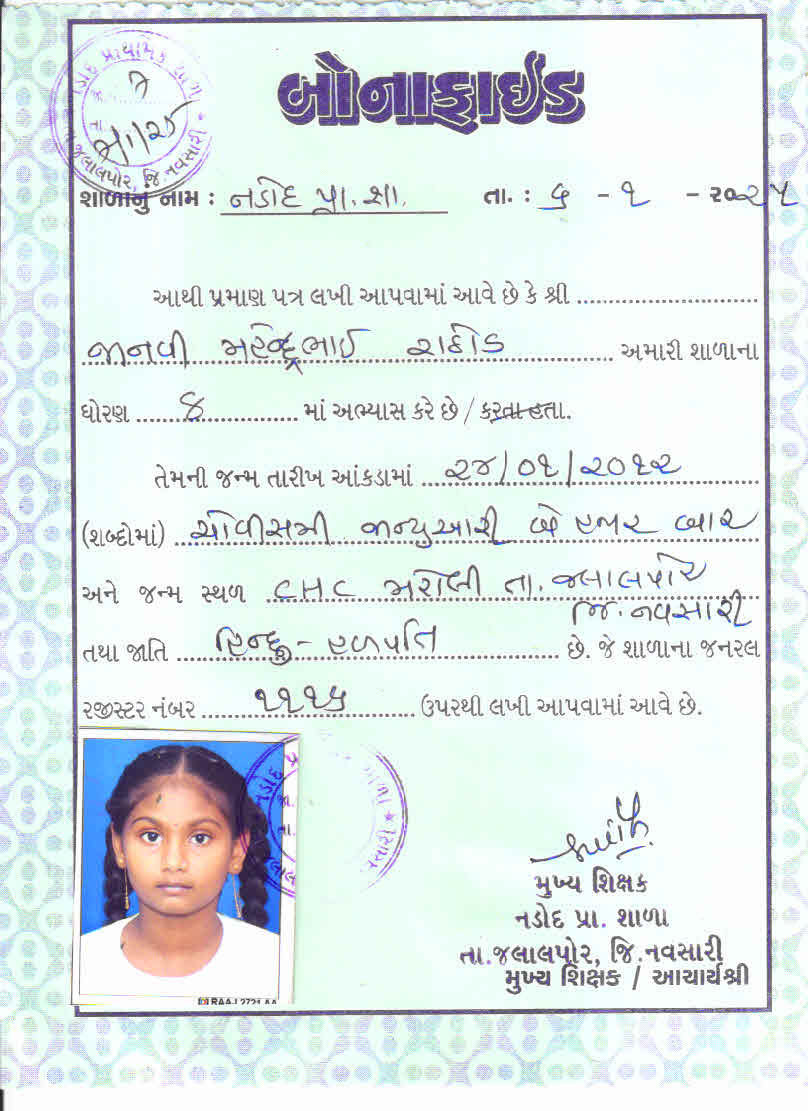 બોનાફાઈડ
નડોદ પ્રાથમિક શાળા
જા. 7
તા.
તા. જલાલપોર, જિ. નવસારી
શાળાનું નામ : નડોદ પ્રા. શા. તા. : ૬ - ૧ - ૨૦૨૫
આથી પ્રમાણ પત્ર લખી આપવામાં આવે છે કે શ્રી
જાનવી મહેન્દ્રભાઈ રાઠોડ અમારી શાળાના
ધોરણ ૪ માં અભ્યાસ કરે છે / કરતા હતા.
તેમની જન્મ તારીખ આંકડામાં ૨૪/૦૧/૨૦૧૨
(શબ્દોમાં) ચોવીસમી જાન્યુઆરી બે હજાર બાર
અને જન્મ સ્થળ CHC મરોલી તા. જલાલપોર
જિ. નવસારી
તથા જાતિ હિન્દુ - હળપતિ છે. જે શાળાના જનરલ
રજીસ્ટર નંબર ૧૧૧૫ ઉપરથી લખી આપવામાં આવે છે.
મુખ્ય શિક્ષક
નડોદ પ્રા. શાળા
તા.જલાલપોર, જિ.નવસારી
મુખ્ય શિક્ષક / આચાર્યશ્રી